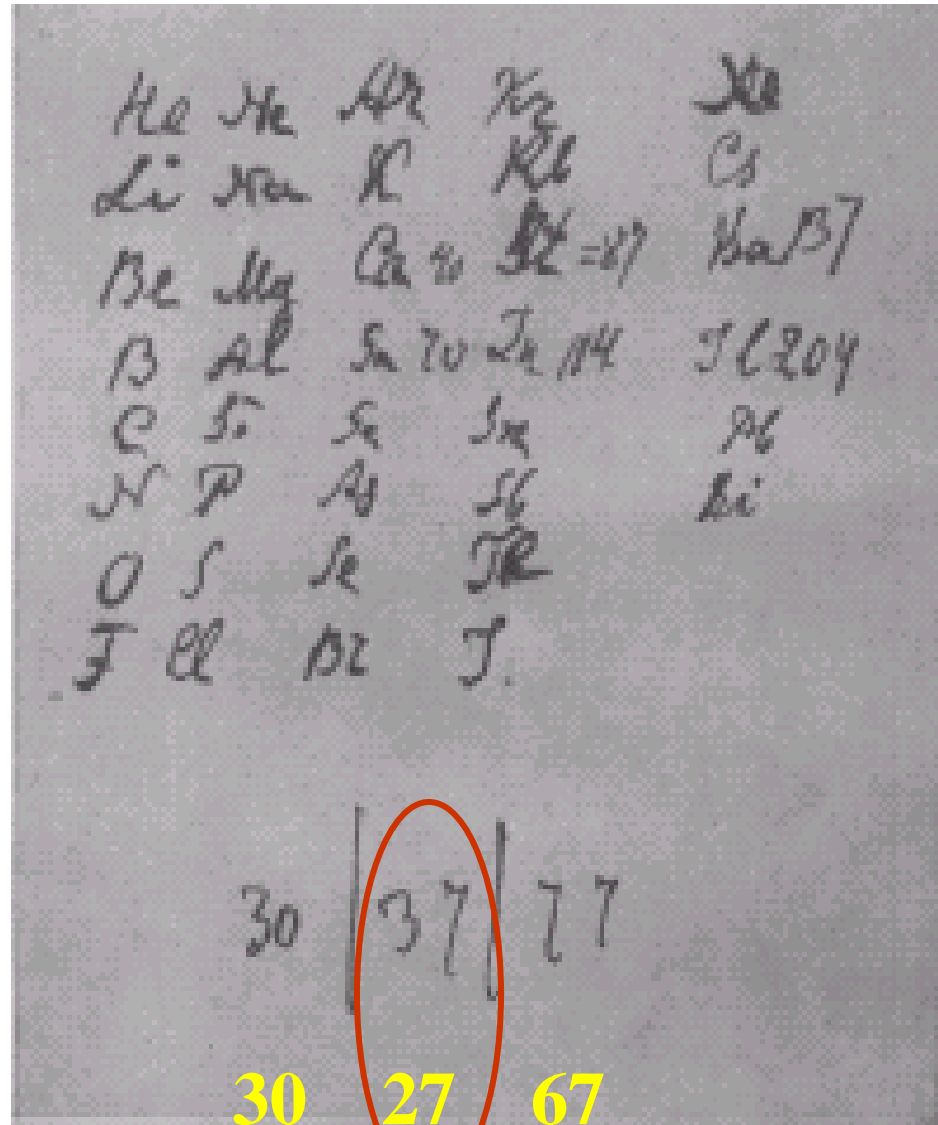 He Ne Ar Kr Xe
Li Na K Rb Cs
Be Mg Ca 40 =87 Ba 137
B Al 70 In 114 Tl 204
C Si Sn Pb
N P As Sb Bi
O S Se Te
F Cl Br J.
30 | 37 | 77
30 27 67